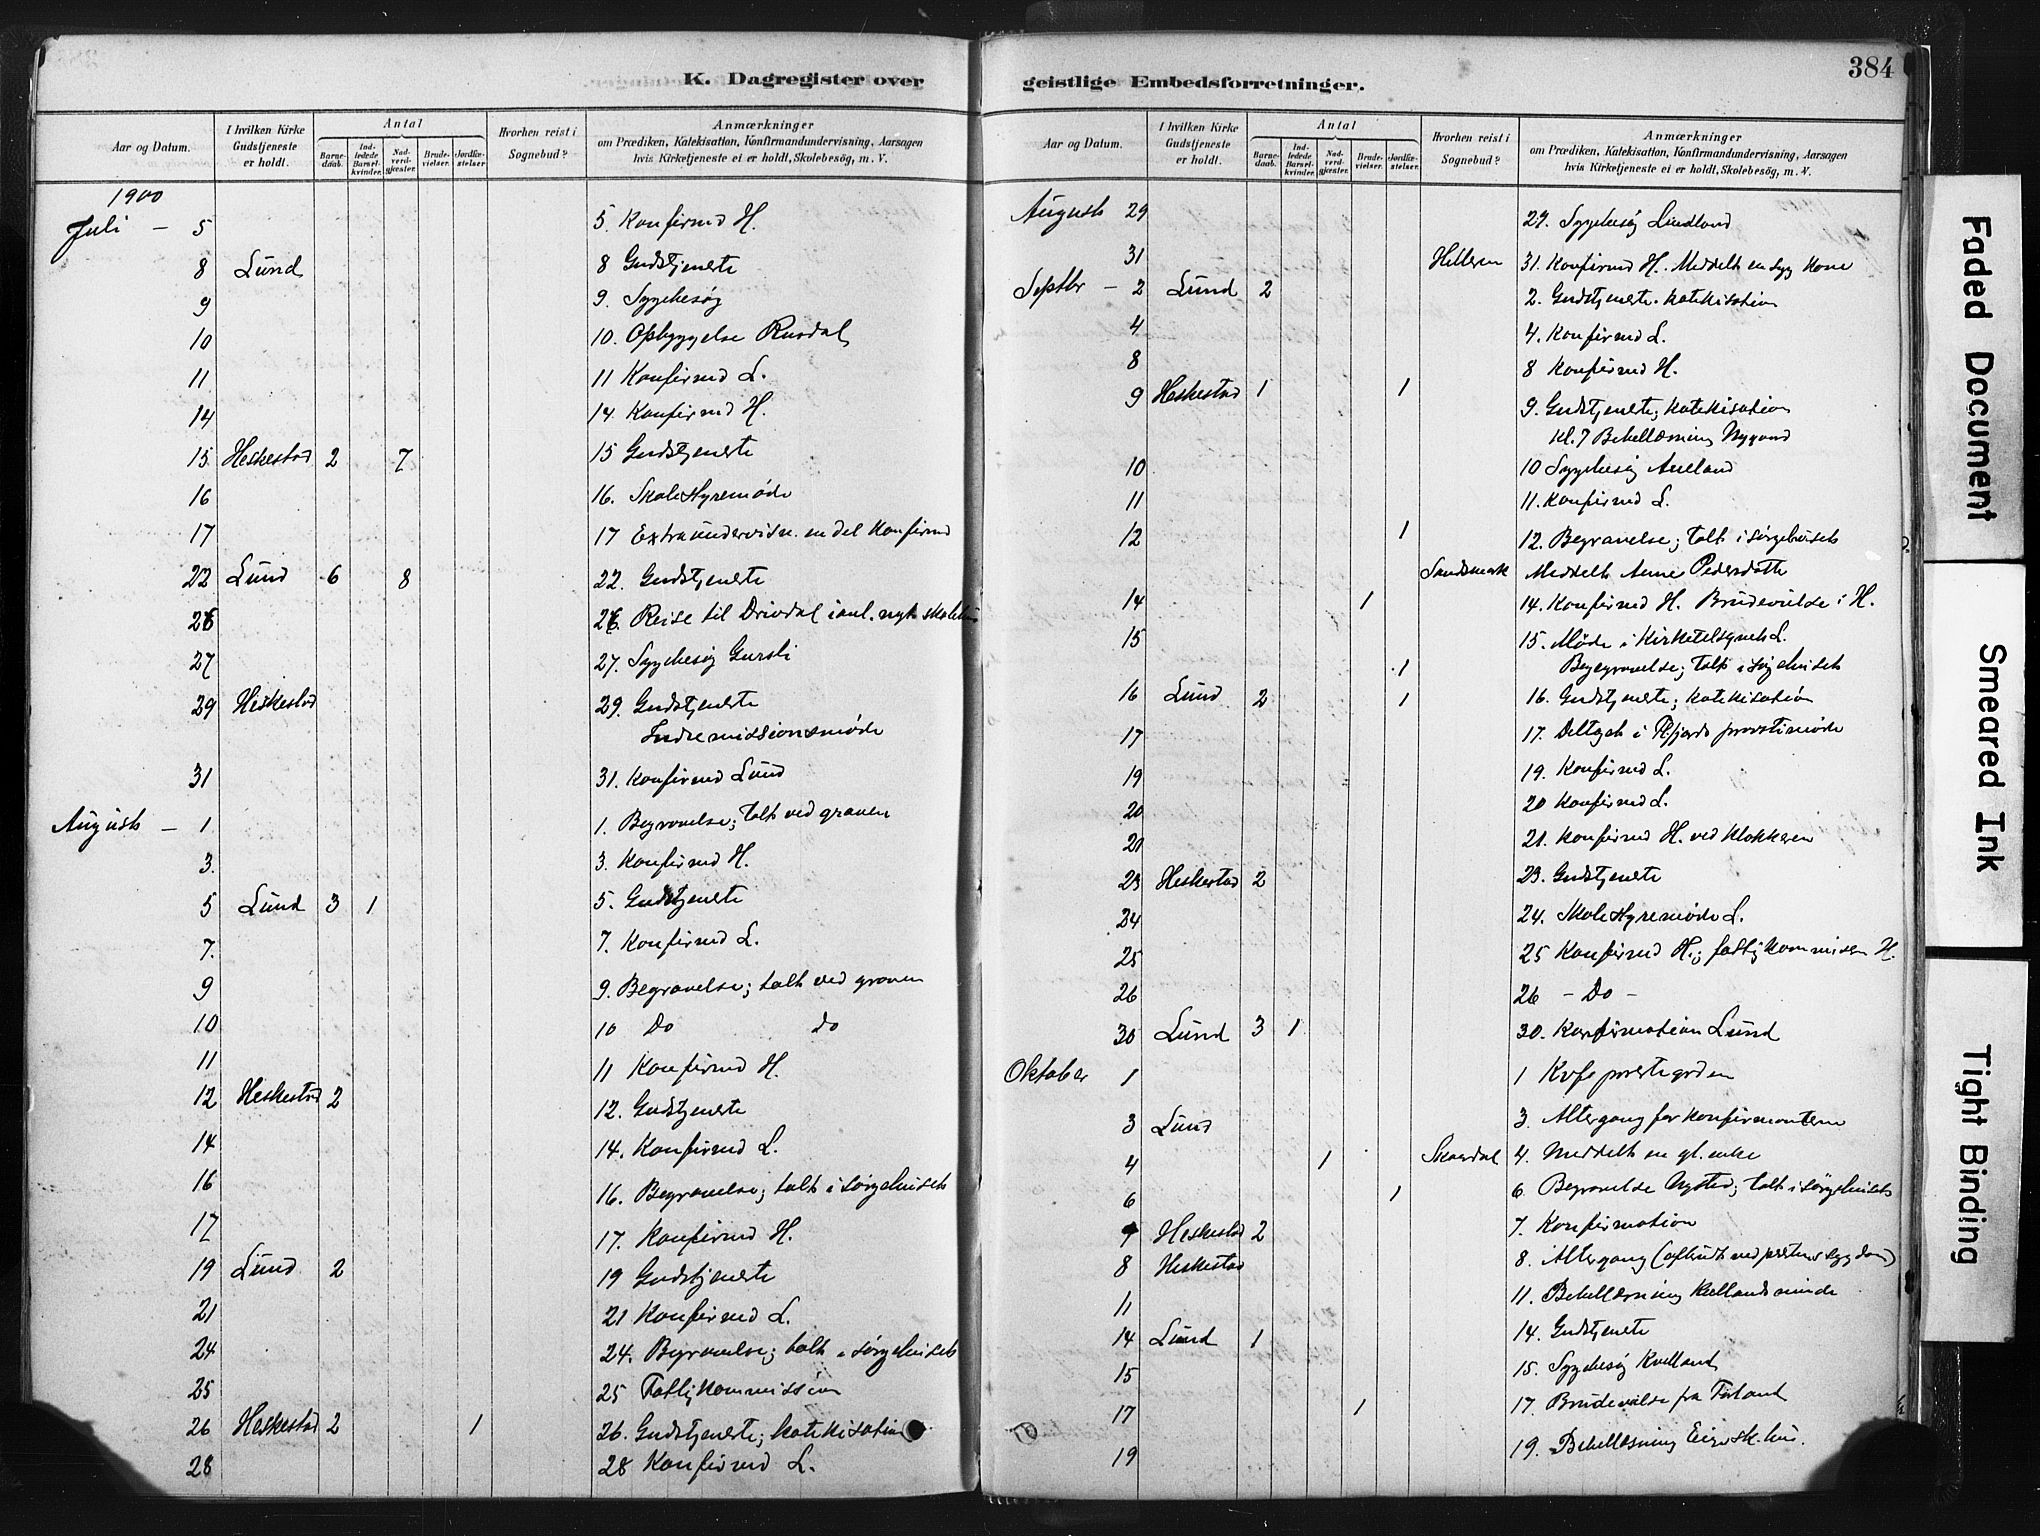 K. Dagregister over
Aar og Datum.
I hvilken Kirke Gudstjeneste er holdt.
Antal
Barnedaab.
Indledede Barselkvinder.
Nadverdgjæster.
Brudevielser.
Jordfæstelser
Hvorhen reist i Sognebud?
Anmærkninger
om Prædiken, Katekisation, Konfirmandundervisning, Aarsagen
hvis Kirketjeneste ei er holdt, Skolebesøg, m. V.
1900
Juli — 5 5. Konfirmd H.
8 Lund 8 Gudstjeneste
9 9. Sygebesøg
10 10. Opbyggelse Rusdal
11 11 Konfirmd L.
14 14. Konfirmd H.
15 Heskestad 2 7 15 Gudstjeneste
16 16. Skolestyremøde
17 17 Extraundervisn. en del Konfirmd
22 Lund 6 8 22. Gudstjeneste
26 26. Reise til Drivdal i anl. nyt skolehus
27 27. Sygebesøg Gursli
29 Heskestad 29. Gudstjeneste
Indremissionsmøde
31 31. Konfirmd Lund
August — 1 1. Begravelse; talt ved graven
3. 3. Konfirmd H.
5 Lund 3 1 5. Gudstjeneste
7. 7. Konfirmd L.
9 9. Begravelse; talt ved graven
10 10 Do do
11 11 Konfirmd H.
12 Heskestad 2 12. Gudstjeneste
14 14. Konfirmd L.
16 16. Begravelse; talt i sørgehuset
17 17. Konfirmd H.
19 Lund 2 19 Gudstjeneste
21 21 Konfirmd L.
24 24. Begravelse; talt i sørgehuset
25 25 Fattigkommission
26 Heskestad 2 1 26. Gudstjeneste; katekisation
28 28 Konfirmd L.
geistlige Embedsforretninger.
384
Aar og Datum.
I hvilken Kirke Gudstjeneste er holdt.
Antal
Barnedaab.
Indledede Barselkvinder.
Nadverdgjæster.
Brudevielser.
Jordfæstelser.
Hvorhen reist i Sognebud?
Anmærkninger
om Prædiken, Katekisation, Konfirmandundervisning, Aarsagen
hvis Kirketjeneste ei er holdt, Skolebesøg, m. V.
August 29 29. Sygebesøg Lindland
31 Helleren 31. Konfirmd H. Meddelt en syg kone
Septbr — 2 Lund 2 2. Gudstjeneste. katekisation
4 4. Konfirmd L.
8 8 Konfirmd H.
9 Heskestad 1 1 9. Gudstjeneste; katekisation
Kl. 7 Bibellæsning Nygaard
10 10 Sygebesøg
11 11. Konfirmd L.
12 1 12. Begravelse; talt i sørgehuset
Sandsmark Meddelt Anne Pedersdatter
14 1 14. Konfirmd H. Brudevielse i H.
15 15. Møde i Kirketilsynet L.
1 Begravelse; talt i sørgehuset
16 Lund 2 1 16. Gudstjeneste; katekisation
17 17. Deltaget i Fl.fjords provstimøde
19 19. Konfirmd L.
20 20 Konfirmd L.
21 21. Konfirmd H. ved klokkeren
23 Heskestad 2 23. Gudstjeneste
24 24. Skolestyremøde L.
25 25 Konfirmd H.; fattigkommission H.
26 26 – Do –
30 Lund 3 1 30. Konfirmation Lund
Oktober 1 1
3 Lund 3. Altergang for konfirmanterne
4 1 Skaardal 4. Meddelt en gl. enke
6 1 6. Begravelse Nysted; talt i sørgehuset
7 Heskestad 2 7. Konfirmation
8 Heskestad 8. Altergang (aflyst ved prestens sygdom)
11 11. Bibellæsning
14 Lund 1 14. Gudstjeneste
15 15. Sygebesøg Kvelland
17 1 17. Brudevielse fra
19 19. Bibellæsning
Faded Document
Smeared Ink
Tight Binding